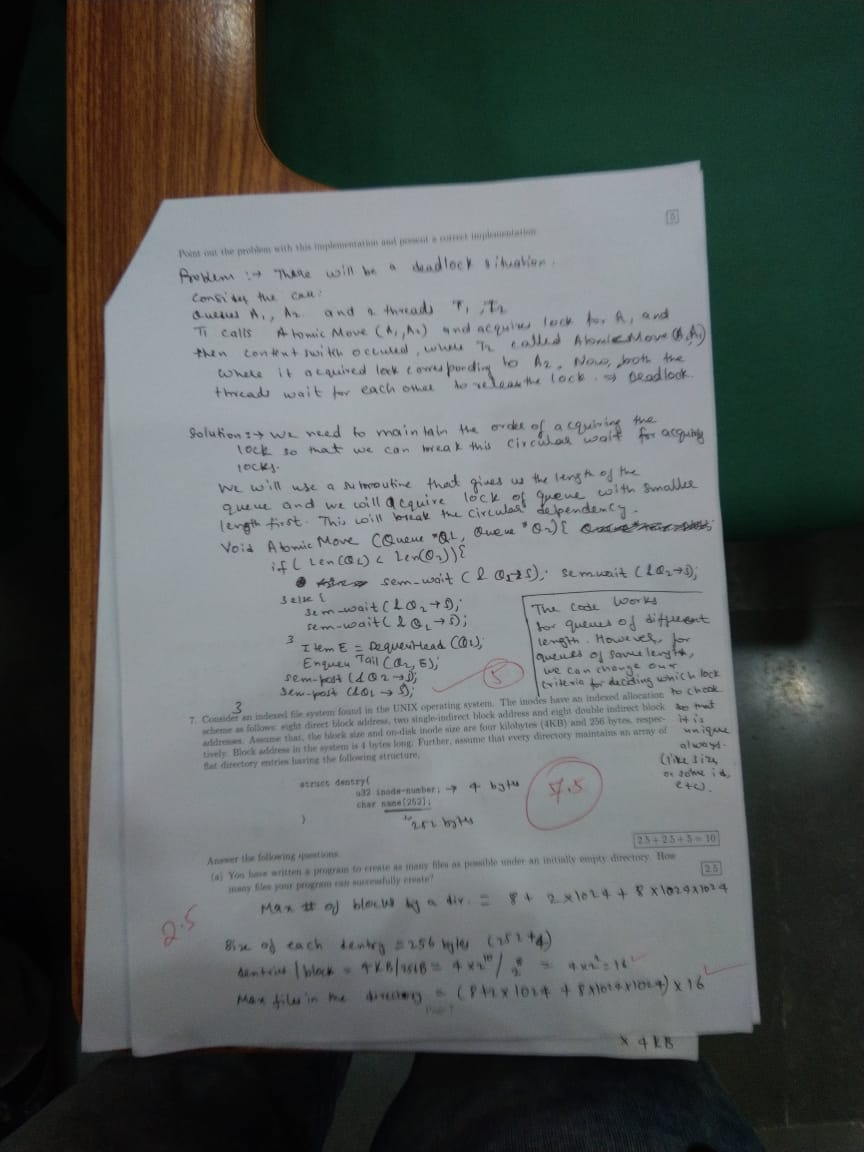 5
Point out the problem with this implementation and present a correct implementation
Problem :→ There will be a deadlock situation.
Consider the case:
Queues A1, A2 and 2 threads T1, T2
T1 calls Atomic Move (A1, A2) and acquires lock for A1 and
then context switch occured, where T2 called AtomicMove (A2, A1)
where it acquired lock corresponding to A2. Now, both the
threads wait for each other to release the lock. ⇒ Deadlock.
Solution :→ We need to maintain the order of acquiring the
lock so that we can break this circular wait for acquiring
locks.
We will use a subroutine that gives us the length of the
queue and we will acquire lock of queue with smaller
length first. This will break the circular dependency.
Void Atomic Move (Queue *Q1, Queue *Q2){
if ( Len(Q1) < Len(Q2)){
sem-wait ( & Q1→S); semwait (&Q2→S);
} else {
sem-wait (& Q2→S);
sem-wait (& Q1→S);
}
Item E = DequeuHead (Q1);
Enqueu Tail (Q2, E);
sem-post (&Q2→S);
sem-post (&Q1→S);
}
The code works
for queues of different
length. However, for
queues of same length,
we can change our
criteria for deciding which lock
to check
so that
it is
unique
always.
(like size,
or some id,
etc).
5
7. Consider an indexed file system found in the UNIX operating system. The inodes have an indexed allocation
scheme as follows: eight direct block address, two single-indirect block address and eight double indirect block
addresses. Assume that, the block size and on-disk inode size are four kilobytes (4KB) and 256 bytes, respec-
tively. Block address in the system is 4 bytes long. Further, assume that every directory maintains an array of
flat directory entries having the following structure.
struct dentry{
u32 inode-number; → 4 bytes
char name[252];
252 bytes
}
7.5
2.5 + 2.5 + 5 = 10
Answer the following questions.
(a) You have written a program to create as many files as possible under an initially empty directory. How
many files your program can successfully create?
2.5
Max # of blocks by a dir. = 8 + 2 x 1024 + 8 x 1024 x 1024
2.5
Size of each dentry = 256 bytes (252+4)
dentries / block = 4KB/256B = 4 x 2^10 / 2^8 = 4 x 2^2 = 16
Max files in the directory = (8+2 x 1024 + 8 x 1024 x 1024) x 16
Page 7
x 4 KB